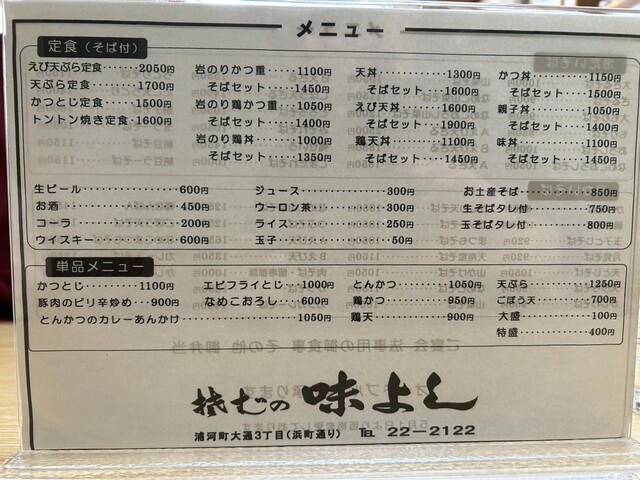 メニュー
定食（そば付）
えび天ぷら定食‥‥2050円
天ぷら定食‥‥‥‥1700円
かつとじ定食‥‥‥1500円
トントン焼き定食‥1600円
岩のりかつ重‥‥‥1100円
そばセット‥‥1450円
岩のり鶏かつ重‥‥1050円
そばセット‥‥1400円
岩のり鶏丼‥‥‥‥1000円
そばセット‥‥1350円
天丼‥‥‥‥‥‥1300円
そばセット‥‥1600円
えび天丼‥‥‥‥1600円
そばセット‥‥1900円
鶏天丼‥‥‥‥‥1100円
そばセット‥‥1450円
かつ丼‥‥‥‥‥1150円
そばセット‥‥1500円
親子丼‥‥‥‥‥1050円
そばセット‥‥1400円
味丼‥‥‥‥‥‥1100円
そばセット‥‥1450円
生ビール‥‥‥‥‥600円
お酒‥‥‥‥‥‥‥450円
コーラ‥‥‥‥‥‥200円
ウイスキー‥‥‥‥600円
ジュース‥‥‥‥‥300円
ウーロン茶‥‥‥‥300円
ライス‥‥‥‥‥‥250円
玉子‥‥‥‥‥‥‥50円
お土産そば‥‥‥‥850円
生そばタレ付‥‥‥750円
玉そばタレ付‥‥‥800円
単品メニュー
かつとじ‥‥‥‥‥1100円
豚肉のピリ辛炒め‥900円
とんかつのカレーあんかけ‥‥‥‥‥‥1050円
エビフライとじ‥1000円
なめこおろし‥‥600円
とんかつ‥‥‥‥1050円
鶏かつ‥‥‥‥‥950円
鶏天‥‥‥‥‥‥900円
天ぷら‥‥‥‥‥1250円
ごぼう天‥‥‥‥700円
大盛‥‥‥‥‥‥100円
特盛‥‥‥‥‥‥400円
味よし
浦河町大通3丁目(浜町通り) TEL 22−2122